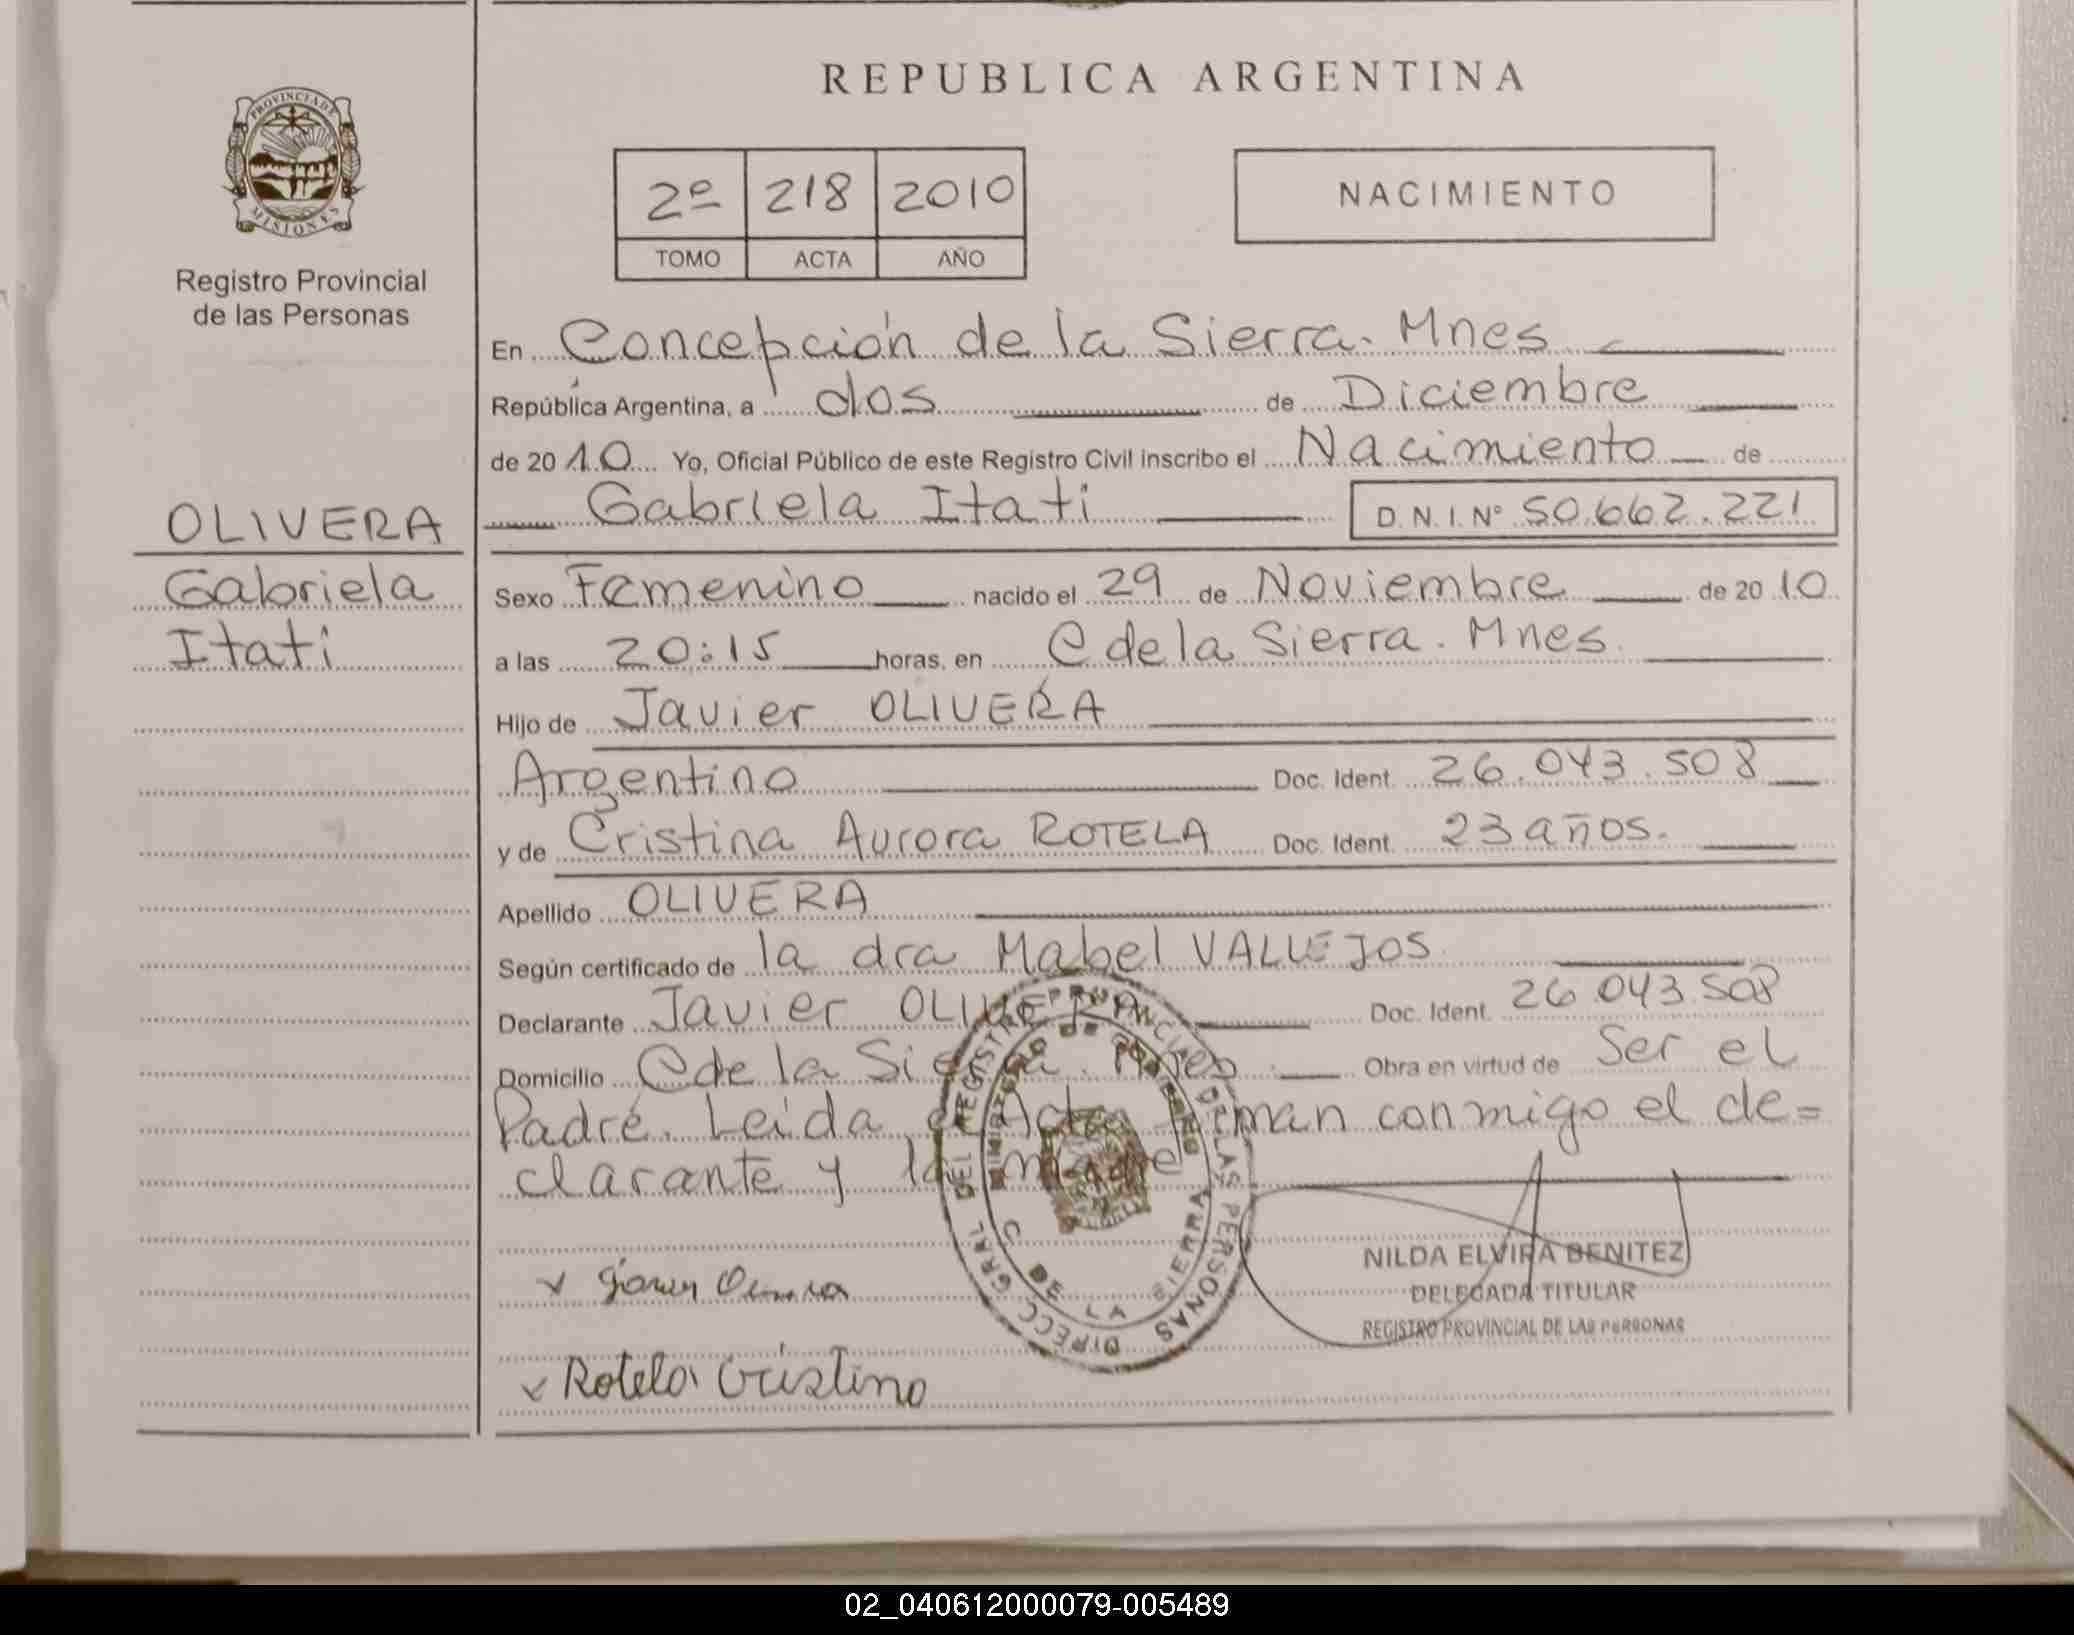 REPUBLICA ARGENTINA
PROVINCIA DE MISIONES
Registro Provincial
de las Personas
2º 218 2010
TOMO ACTA AÑO
NACIMIENTO
En Concepción de la Sierra. Mnes
República Argentina, a dos de Diciembre
de 2010 Yo, Oficial Público de este Registro Civil inscribo el Nacimiento de
Gabriela Itati D.N.I.Nº 50.662.221
OLIVERA
Gabriela
Itati
Sexo Femenino nacido el 29 de Noviembre de 2010
a las 20:15 horas, en C de la Sierra. Mnes.
Hijo de Javier OLIVERA
Argentino Doc. Ident. 26.043.508
y de Cristina Aurora ROTELA Doc. Ident. 23 años.
Apellido OLIVERA
Según certificado de la dra Mabel VALLEJOS
Declarante Javier OLIVERA Doc. Ident. 26.043.508
Domicilio C de la Sierra. Mnes Obra en virtud de Ser el
Padre. Leida el Acta firman conmigo el de=
clarante y la madre
DIRECC. GRAL. DEL REGISTRO PROVINCIAL DE LAS PERSONAS
MINISTERIO DE GOBIERNO
C. DE LA SIERRA
NILDA ELVIRA BENITEZ
DELEGADA TITULAR
REGISTRO PROVINCIAL DE LAS PERSONAS
Rotela Cristina
02_040612000079-005489